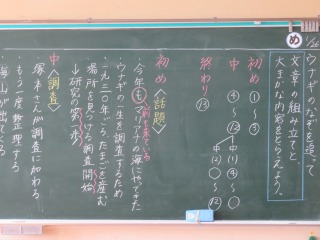 1/26
ウナギのなぞを追って
め
文章の組み立てと、
大まかな内容をとらえよう。
初め ①〜③
中 ④〜⑫
中(1) ④〜○
中(2) ○〜⑫
終わり ⑬
初め〈話題〉
・今年もマリアナの海にやってきた
ウナギの一生を調査するため
・一九三〇年ごろ、たまごを産む
場所を見つける調査開始
↓研究の第一歩
中〈調査〉
塚本さんが調査に加わる
・もう一度整理する
・海山が出てくる